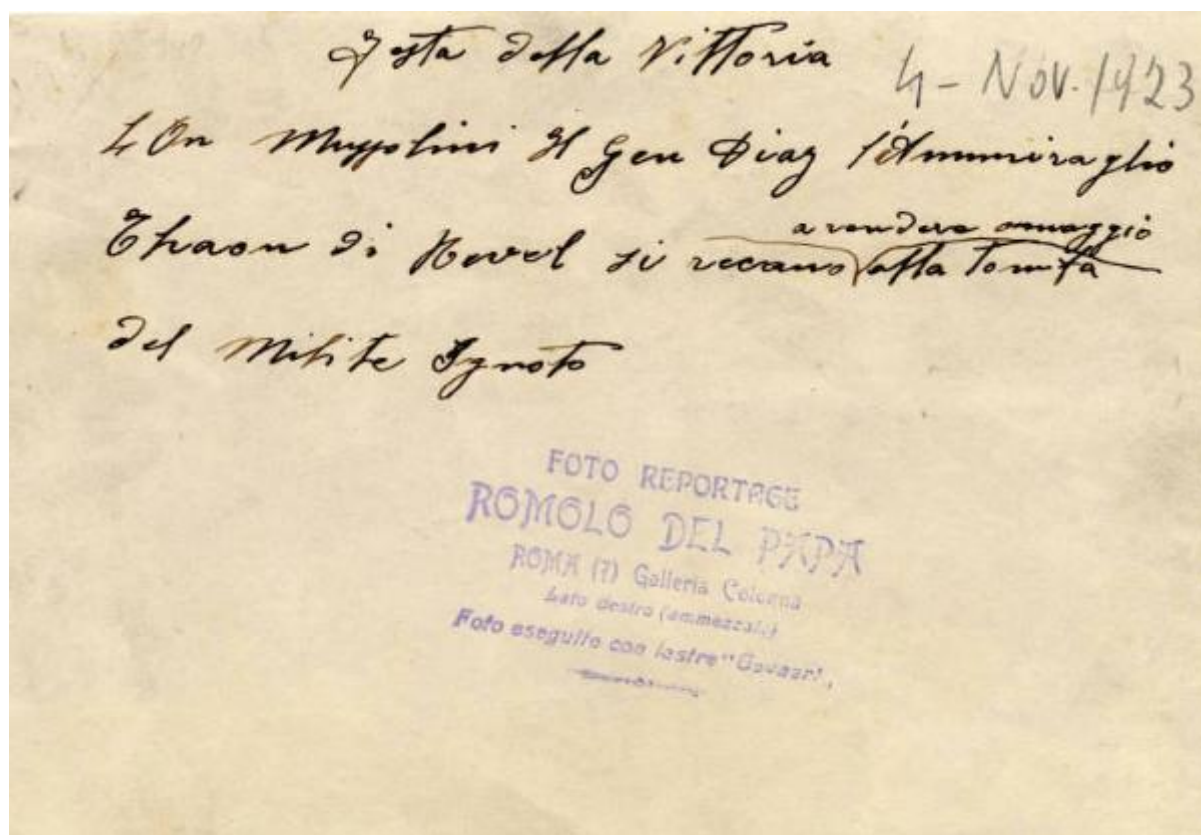 Festa della Vittoria
4 - Nov. 1923
L On Mussolini Il Gen Diaz l'Ammiraglio
Thaon di Revel si recano a rendere omaggio alla Tomba
del Milite Ignoto
FOTO REPORTAGE
ROMOLO DEL PAPA
ROMA (7) Galleria Colonna
Lato destro (ammezzato)
Foto eseguito con lastre "Gevaert,,